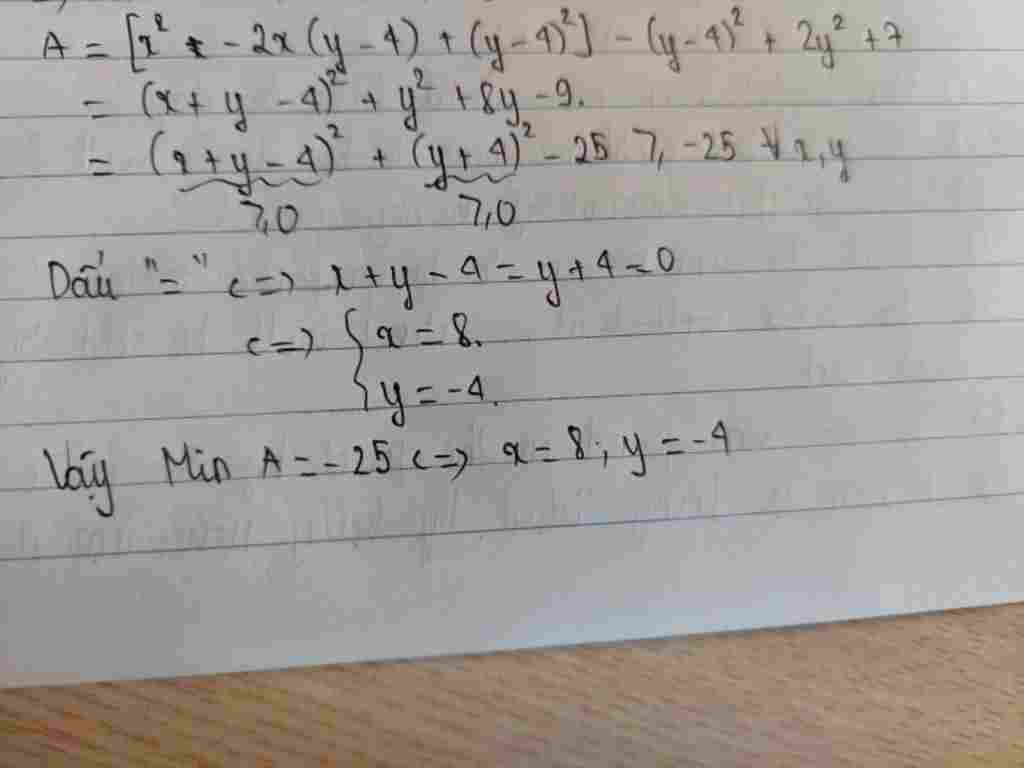 A = [x² - 2x(y-4) + (y-4)²] - (y-4)² + 2y² + 7
= (x+y-4)² + y² + 8y - 9.
= (x+y-4)² + (y+4)² - 25 ⩾ -25 ∀x,y
⩾0 ⩾0
Dấu "=" <=> x+y-4 = y+4 = 0
<=> { x = 8.
y = -4.
Vậy Min A = -25 <=> x = 8; y = -4